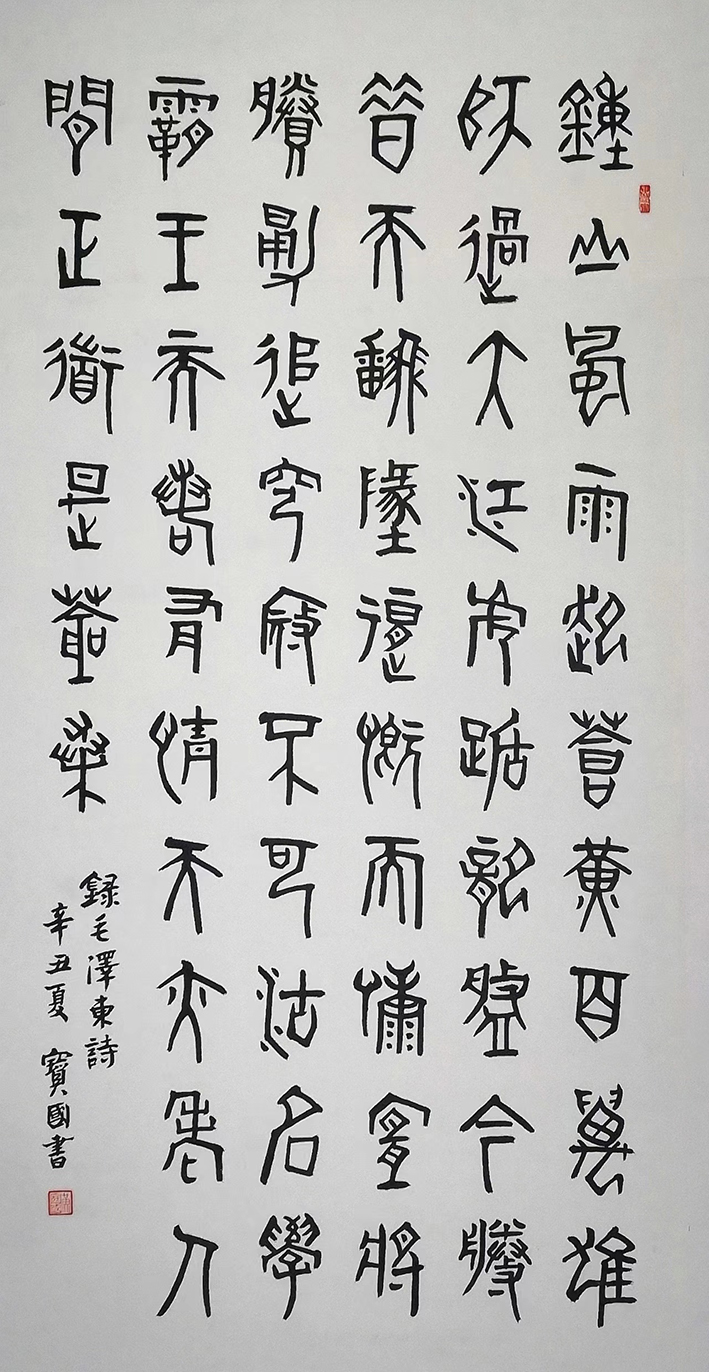 鍾山風雨起蒼黃百萬雄
師過大江虎踞龍盤今勝
昔天翻地覆慨而慷宜將
賸勇追窮寇不可沽名學
霸王天若有情天亦老人
間正道是蒼桑
錄毛澤東詩
辛丑夏 寶國書